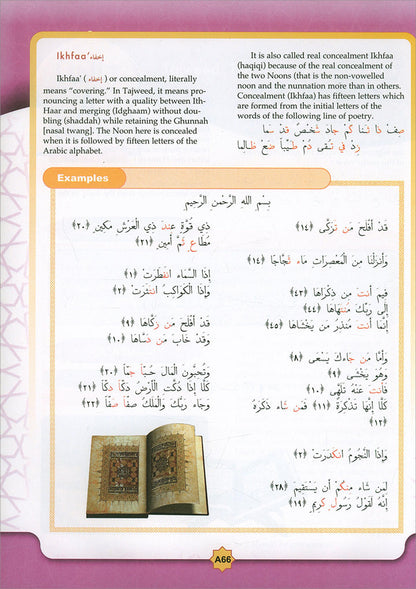 Ikhfaa' إخفاء
Ikhfaa' ( إخفاء ) or concealment, literally
means "covering." In Tajweed, it means pro-
nouncing a letter with a quality between Ith-
Haar and merging (Idghaam) without dou-
bling (shaddah) while retaining the Ghunnah
[nasal twang]. The Noon here is concealed
when it is followed by fifteen letters of the
Arabic alphabet.
It is also called real concealment Ikhfaa
(haqiqi) because of the real concealment of
the two Noons (that is the non-vowelled
noon and the nunnation more than in others.
Concealment (Ikhfaa) has fifteen letters which
are formed from the initial letters of the
words of the following line of poetry.
صِف ذَا ثَنَا كَمْ جَادَ شَخْصٌ قَدْ سَمَا
زِدْ فِي تُقَى دُمْ طَيِّباً ضَعْ ظَالِمَا
Examples
بِسْمِ اللهِ الرَّحْمنِ الرَّحِيمِ
قَدْ أَفْلَحَ مَن تَزَكَّى ﴿١٤﴾
وَأَنزَلْنَا مِنَ الْمُعْصِرَاتِ مَاء ثَجَّاجًا ﴿١٤﴾
فِيمَ أَنتَ مِن ذِكْرَاهَا ﴿٤٣﴾
إِلَى رَبِّكَ مُنتَهَاهَا ﴿٤٤﴾
إِنَّمَا أَنتَ مُنذِرُ مَن يَخْشَاهَا ﴿٤٥﴾
وَأَمَّا مَن جَاءكَ يَسْعَى ﴿٨﴾
وَهُوَ يَخْشَى ﴿٩﴾
فَأَنتَ عَنْهُ تَلَهَّى ﴿١٠﴾
كَلَّا إِنَّهَا تَذْكِرَةٌ ﴿١١﴾ فَمَن شَاء ذَكَرَهُ
﴿١٢﴾
وَإِذَا النُّجُومُ انكَدَرَتْ ﴿٢﴾
لِمَن شَاء مِنكُمْ أَن يَسْتَقِيمَ ﴿٢٨﴾
إِنَّهُ لَقَوْلُ رَسُولٍ كَرِيمٍ ﴿١٩﴾
ذِي قُوَّةٍ عِندَ ذِي الْعَرْشِ مَكِينٍ ﴿٢٠﴾
مُطَاعٍ ثَمَّ أَمِينٍ ﴿٢١﴾
إِذَا السَّمَاء انفَطَرَتْ ﴿١﴾
وَإِذَا الْكَوَاكِبُ انتَثَرَتْ ﴿٢﴾
قَدْ أَفْلَحَ مَن زَكَّاهَا ﴿٩﴾
وَقَدْ خَابَ مَن دَسَّاهَا ﴿١٠﴾
وَتُحِبُّونَ الْمَالَ حُبًّا جَمًّا ﴿٢٠﴾
كَلَّا إِذَا دُكَّتِ الْأَرْضُ دَكًّا دَكًّا ﴿٢١﴾
وَجَاء رَبُّكَ وَالْمَلَكُ صَفًّا صَفًّا ﴿٢٢﴾
A66